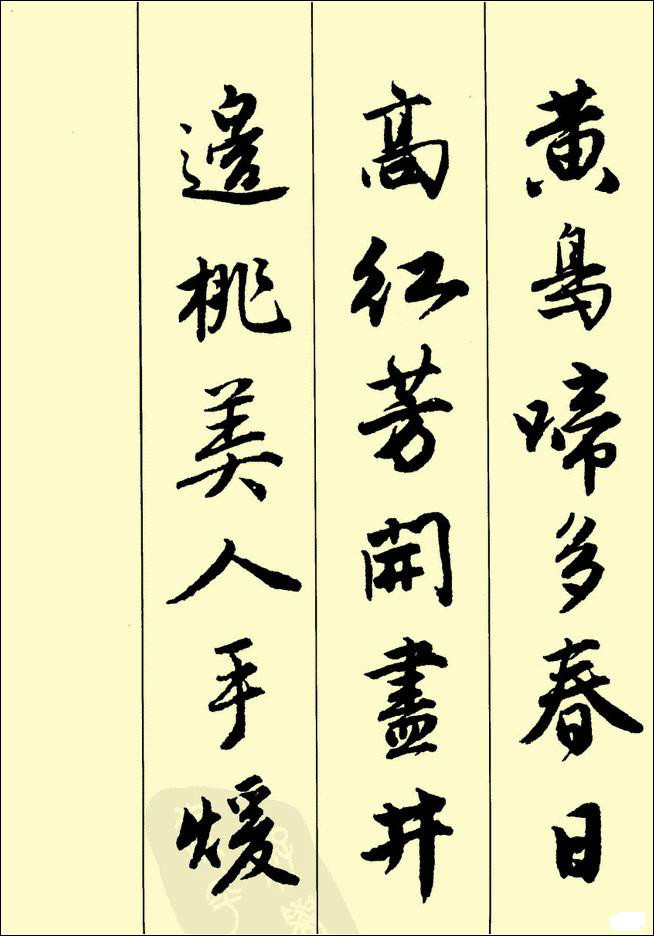 黄鳥啼多春日
高紅芳開盡井
邊桃美人手煖